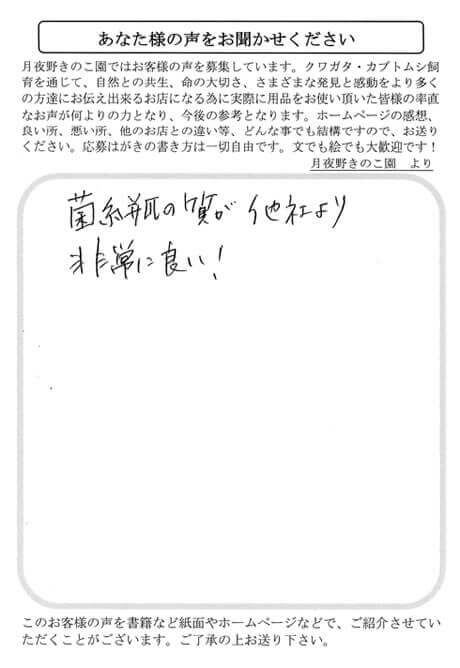 あなた様の声をお聞かせください
月夜野きのこ園ではお客様の声を募集しています。クワガタ・カブトムシ飼
育を通じて、自然との共生、命の大切さ、さまざまな発見と感動をより多く
の方達にお伝え出来るお店になる為に実際に用品をお使い頂いた皆様の率直
なお声が何よりの力となり、今後の参考となります。ホームページの感想、
良い所、悪い所、他のお店との違い等、どんな事でも結構ですので、お送り
ください。応募はがきの書き方は一切自由です。文でも絵でも大歓迎です！
月夜野きのこ園　より
菌糸瓶の質が他社より
非常に良い！
このお客様の声を書籍など紙面やホームページなどで、ご紹介させてい
ただくことがございます。ご了承の上お送り下さい。